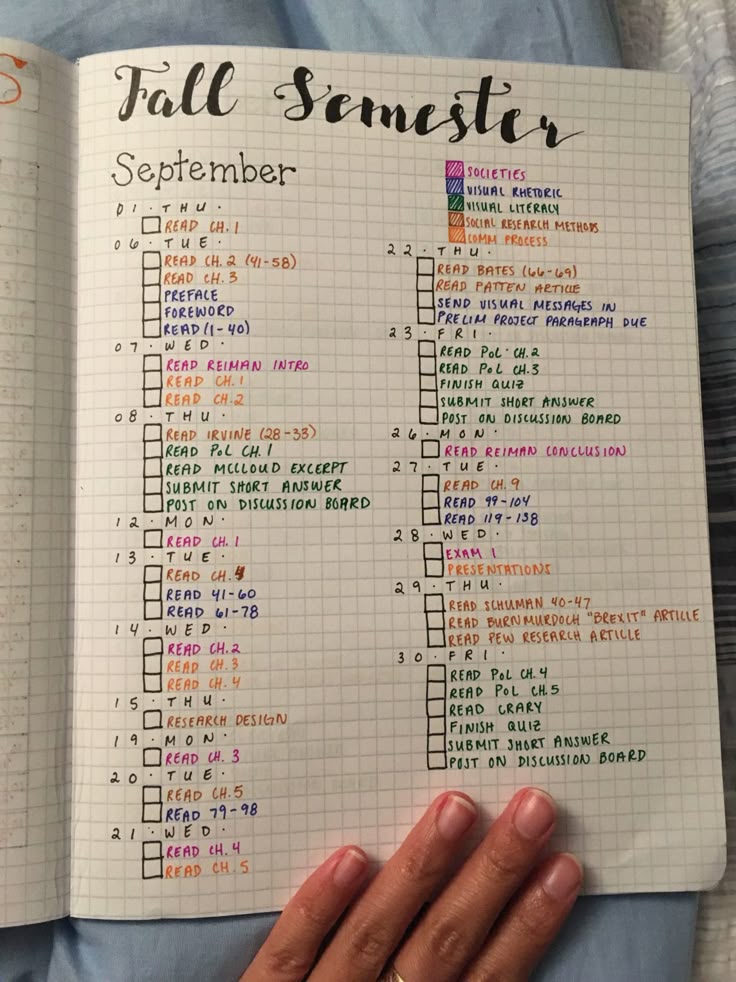 S
Fall Semester
September
SOCIETIES
VISUAL RHETORIC
VISUAL LITERACY
SOCIAL RESEARCH METHODS
COMM PROCESS
01 · THU ·
READ CH. 1
06 · TUE ·
READ CH. 2 (41-58)
READ CH. 3
PREFACE
FOREWORD
READ (1-40)
07 · WED ·
READ REIMAN INTRO
READ CH. 1
READ CH. 2
08 · THU ·
READ IRVINE (28-33)
READ POL CH. 1
READ MCCLOUD EXCERPT
SUBMIT SHORT ANSWER
POST ON DISCUSSION BOARD
12 · MON ·
READ CH. 1
13 · TUE ·
READ CH. 4
READ 41-60
READ 61-78
14 · WED ·
READ CH. 2
READ CH. 3
READ CH. 4
15 · THU ·
RESEARCH DESIGN
19 · MON ·
READ CH. 3
20 · TUE ·
READ CH. 5
READ 79-98
21 · WED ·
READ CH. 4
READ CH. 5
22 · THU ·
READ BATES (66-69)
READ PATTEN ARTICLE
SEND VISUAL MESSAGES IN
PRELIM PROJECT PARAGRAPH DUE
23 · FRI ·
READ POL · CH. 2
READ POL CH. 3
FINISH QUIZ
SUBMIT SHORT ANSWER
POST ON DISCUSSION BOARD
26 · MON ·
READ REIMAN CONCLUSION
27 · TUE ·
READ CH. 9
READ 99-104
READ 119-138
28 · WED ·
EXAM 1
PRESENTATIONS
29 · THU ·
READ SCHUMAN 40-47
READ BURNMURDOCH "BREXIT" ARTICLE
READ PEW RESEARCH ARTICLE
30 · FRI ·
READ POL CH. 4
READ POL CH. 5
READ CRARY
FINISH QUIZ
SUBMIT SHORT ANSWER
POST ON DISCUSSION BOARD